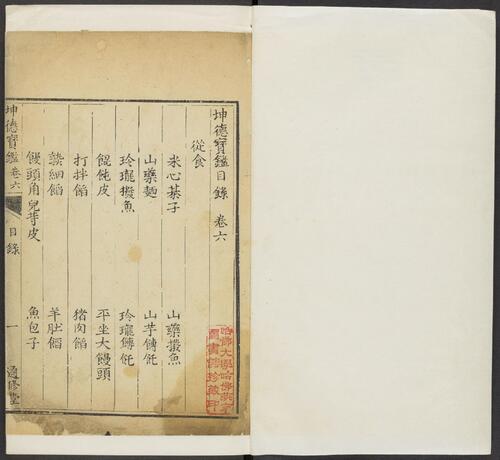 坤德寶鑑目錄 卷六
從食
米心棊子 山藥撥魚
山藥麵 山芋餺飥
玲瓏撥魚 玲瓏餺飥
餛飩皮 平坐大饅頭
打拌餡 猪肉餡
熟細餡 羊肚餡
饅頭角兒等皮 魚包子
坤德寶鑑 卷六 目錄 一
哈佛大學哈佛燕京
圖書館珍藏印